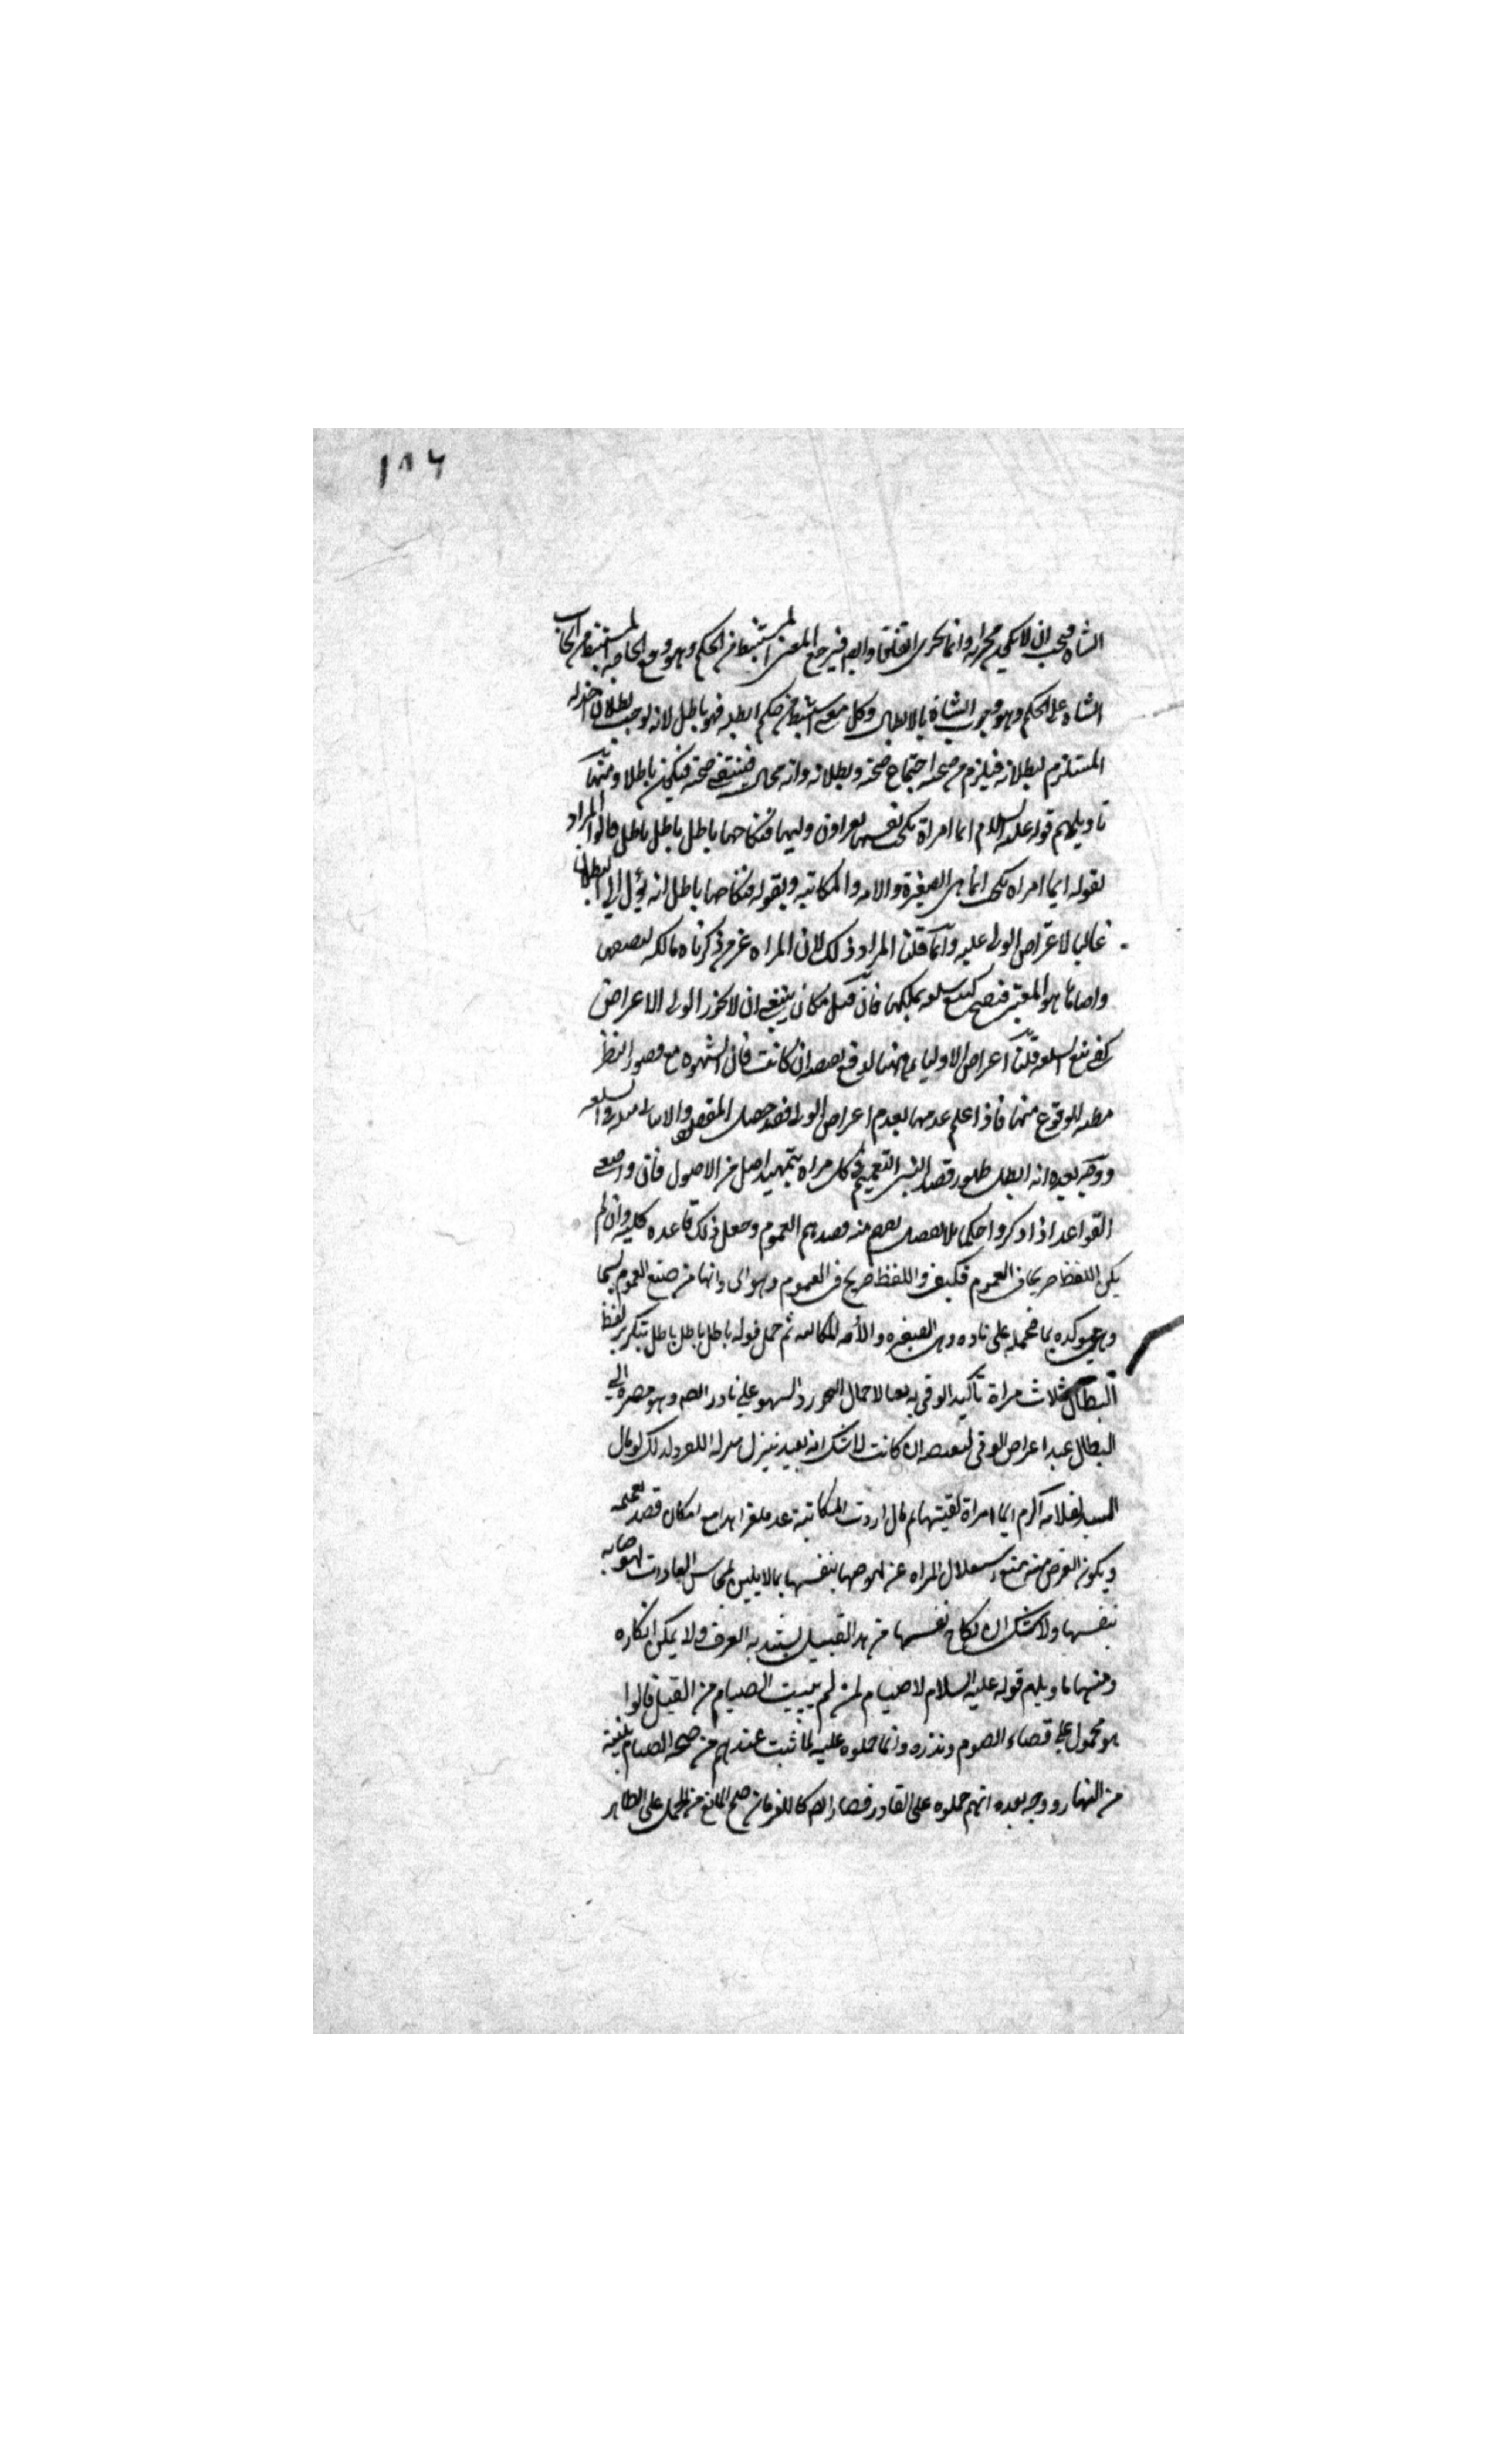 ١٨٦
الشاه فيجب ان لا يجب وانما يجزى اتفاقا فيرجع المعنى المستنبط من الحكم وهو دفع الحاجه المستنبط من ايجاب
الشاه على الحكم وهو وجوب الشاة بالابطال وكل معنى استنبط من حكم ابطله فهو باطل لانه يوجب بطلان اصله
المستلزم لبطلانه فيلزم من صحته اجتماع صحته وبطلانه وانه محال فينتفى صحته فيكون باطلا ومنها
تاويلهم قوله عليه السلام ايما امراة نكحت نفسها بغير اذن وليها فنكاحها باطل باطل باطل قالوا المراد
بقوله ايما امراه نكحت انما هى الصغيرة والامه والمكاتبه وبقوله فنكاحها باطل انه يؤل الى البطلان
غالبا لاعتراض الولى عليه وانما قلنا المراد ذلك لان المراه غير من ذكرناه مالكه لبضعها
ورضاها هو المعتبر فيصح كبيع سلعه يملكها فان قيل فكان ينبغى ان لا يجوز للولى الاعتراض
كفى بيع السلعه قلنا اعتراض الاولياء لدفع نقيصه ان كانت فان الشهوه مع قصور النظر
مظنه للوقوع منها فاذا علم عدمها بعدم اعتراض الولى فقد حصل المقصود
ووجه بعده انه ابطل ظهور قصد النبى التعميم فى كل امراه بتمهيد اصل من الاصول فان واضعى
القواعد اذا ذكروا حكما بلا تفصيل يفهم منه قصدهم العموم وجعل ذلك قاعده كليه وان لم
يكن اللفظ صريحا فى العموم فكيف واللفظ صريح فى العموم وهو اى وانها من صيغ العموم سيما
وهى موكده بما فحمله على نادره وهى الصغيره والأمه والمكاتبه ثم حمل قوله باطل باطل باطل بتكرير لفظ
البطلان ثلاث مراة تأكيدا لوقى به دفعا لاحتمال التجوز والسهو على نادر ايضا وهو مصيره الى
البطلان عند اعتراض الولى لنقيصه ان كانت لا شك انه بعيد ينزل منزله اللغز ولذلك لو قال
السيد لغلامه اكرم ايما امراة لقيتها ثم قال اردت المكاتبة عد ملغزا هذا مع امكان قصد تعميمه
ويكون الغرض منه منع استقلال المراه عن نهوضها بنفسها بما لا يليق بمحاسن العادات نهوضها به
بنفسها ولا شك ان نكاح نفسها من هذا القبيل يشهد به العرف ولا يمكن انكاره
ومنها تاويلهم قوله عليه السلام لا صيام لمن لم يبيت الصيام من الليل قالوا
هو محمول على قضاء الصوم ونذره وانما حملوه عليه لما ثبت عندهم من صحه الصيام بنية
من النهار ووجه بعده انهم حملوه على النادر فصار ايضا كاللغز فان صح المانع من الحمل على الظاهر